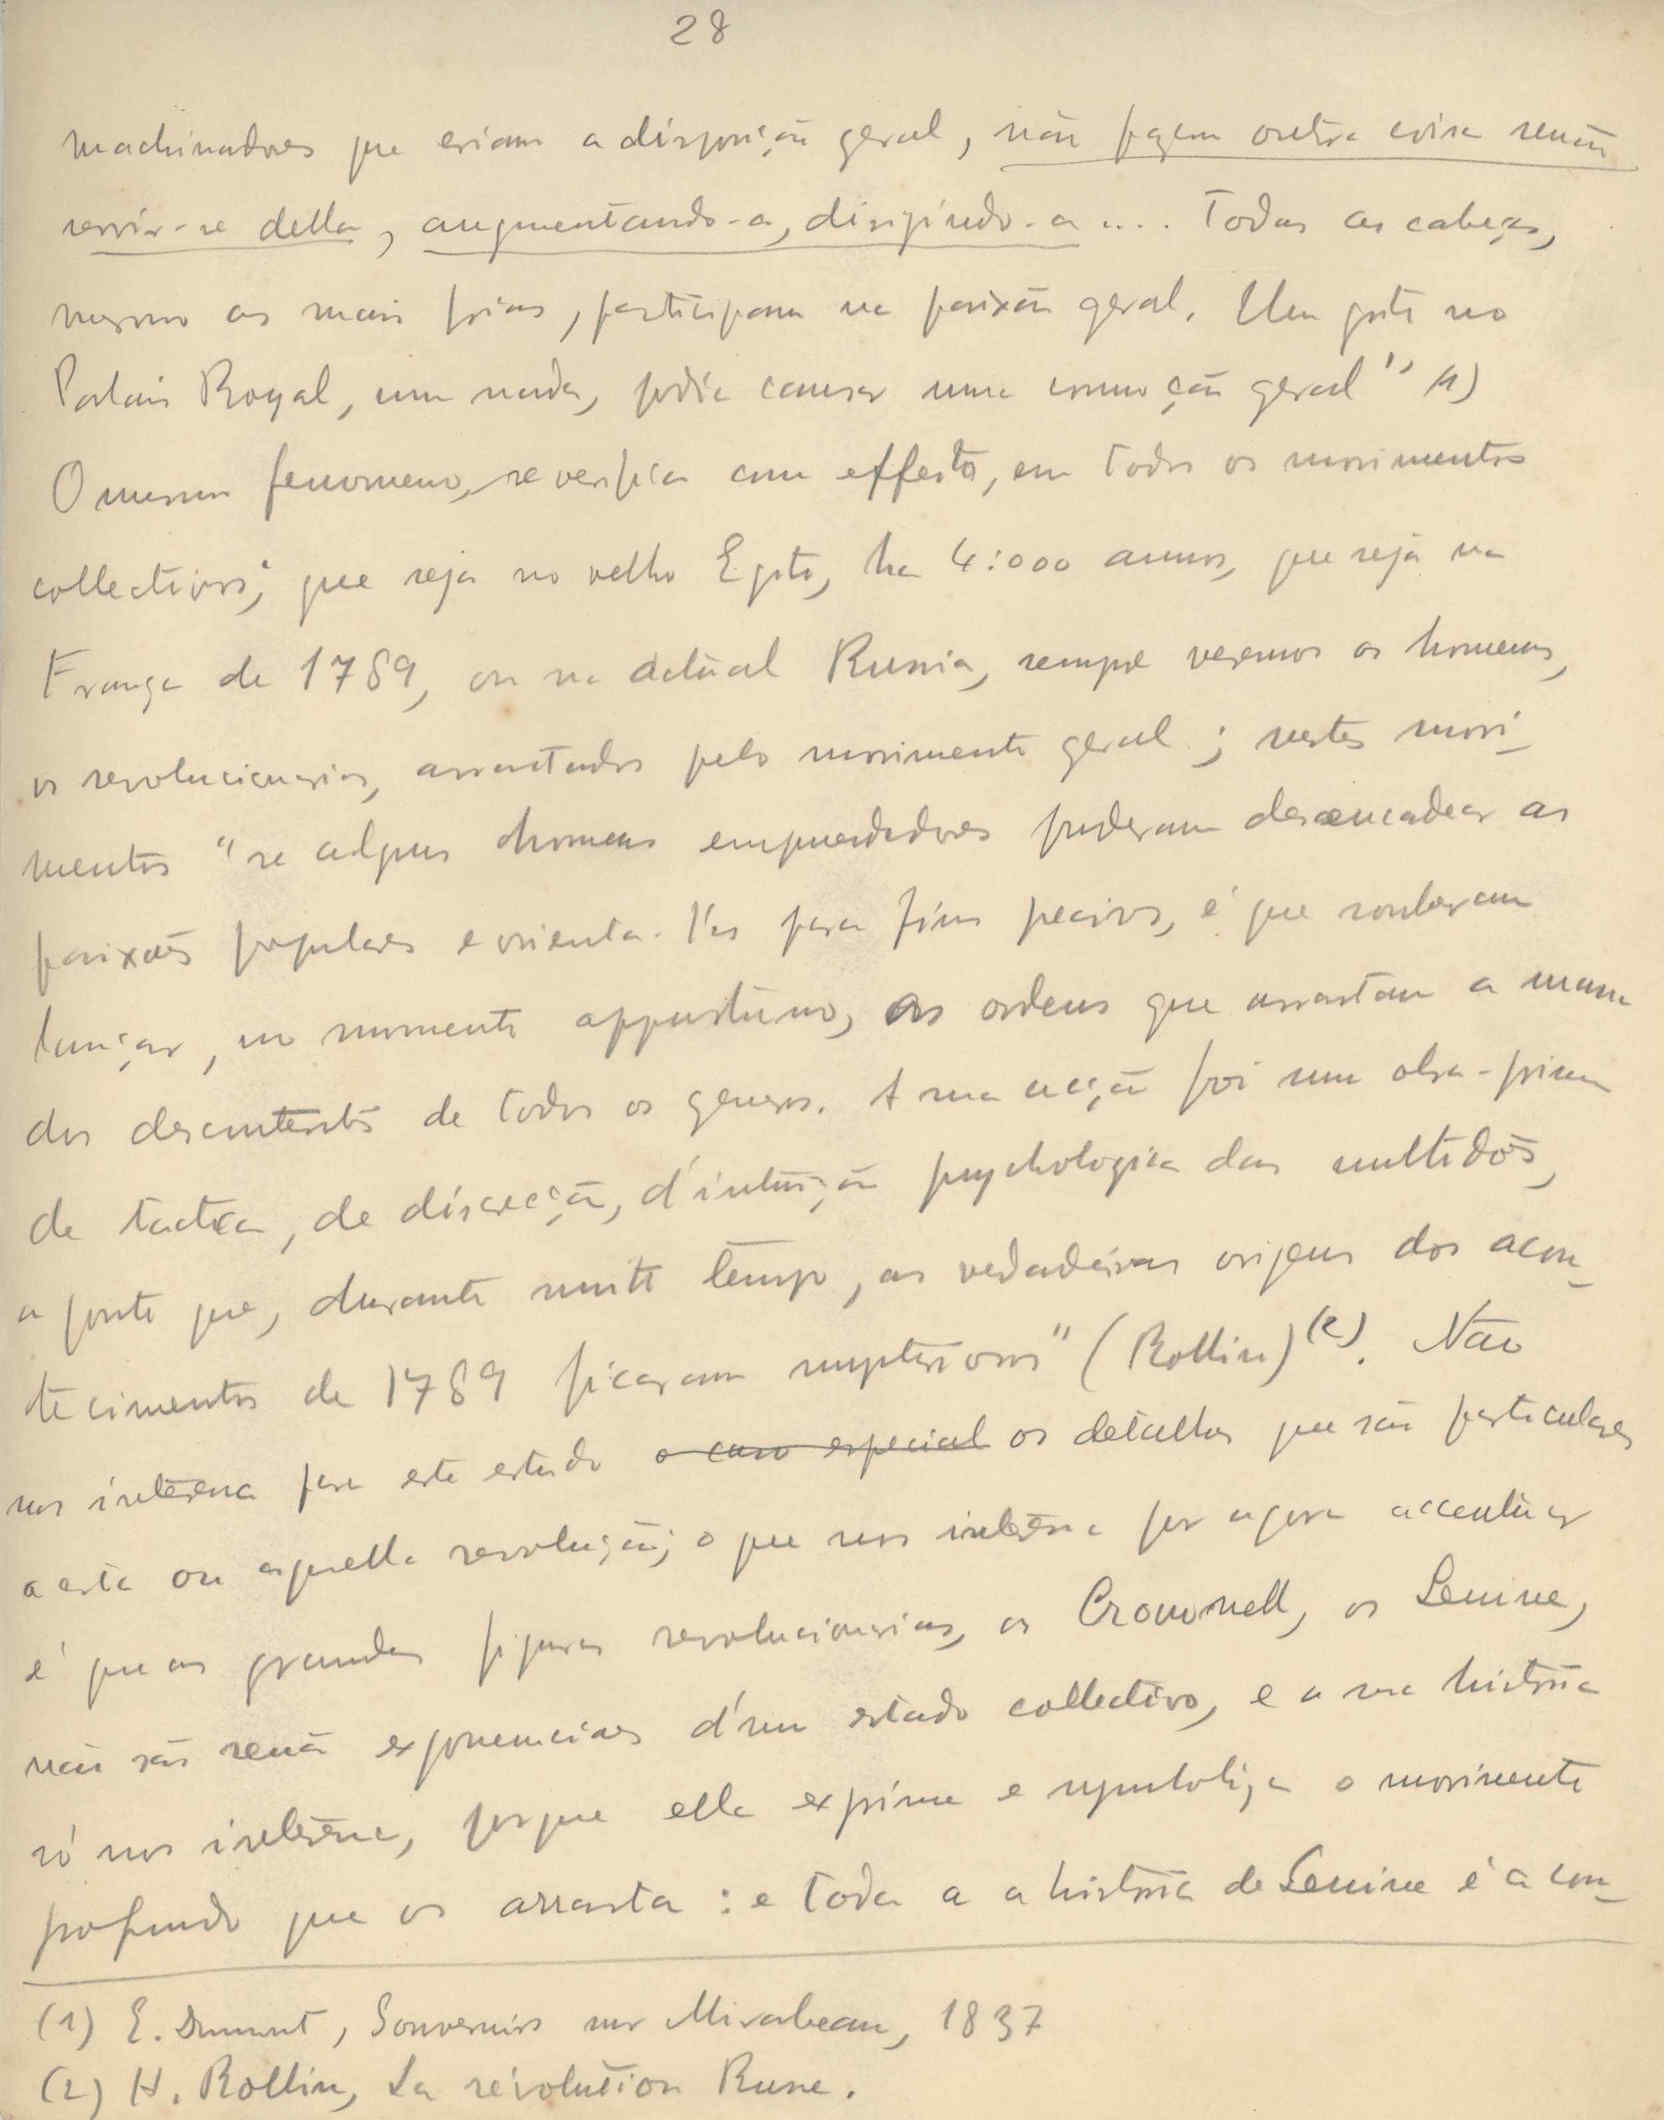 28
machinadores que criam a disposição geral, não fazem outra coisa senão
servir-se della, augmentando-a, dirigindo-a.... Todas as cabeças,
mesmo as mais frias, participam na paixão geral. Um grito no
Palais Royal, um nada, podia causar uma commoção geral" (1)
O mesmo fenomeno, se verifica com effeito, em todos os movimentos
collectivos; que seja no velho Egito, ha 4:000 annos, que seja na
França de 1789, ou na actual Russia, sempre veremos os homens,
os revolucionarios, arrastados pelo movimento geral; nestes movi-
mentos "se alguns homens emprendedores puderam desencadear as
paixões populares e orienta-l'as para fins precisos, é que souberam
lançar, no momento opportuno, as ordens que arrastam a massa
dos descontentes de todos os generos. A sua acção foi uma obra-prima
de tactica, de discreção, d'intuição psychologica das multidões,
a ponto que, durante muito tempo, as verdadeiras origens dos acon-
tecimentos de 1789 ficaram mysteriosos" (Rollin)(2). Não
nos interessa para este estudo o caso especial os detalhes que são particulares
a esta ou aquella revolução; o que nos interessa por agora accentuar
é que as grandes figuras revolucionarias, os Cromwell, os Lenine,
não são senão exponenciaes d'um estado collectivo, e a sua historia
só nos interessa, porque ella exprime e symboliza o movimento
profundo que os arrasta: e toda a a historia de Lenine é a con-
(1) E. Dumont, Souvenirs sur Mirabeau, 1837
(2) H. Rollin, La révolution Russe.